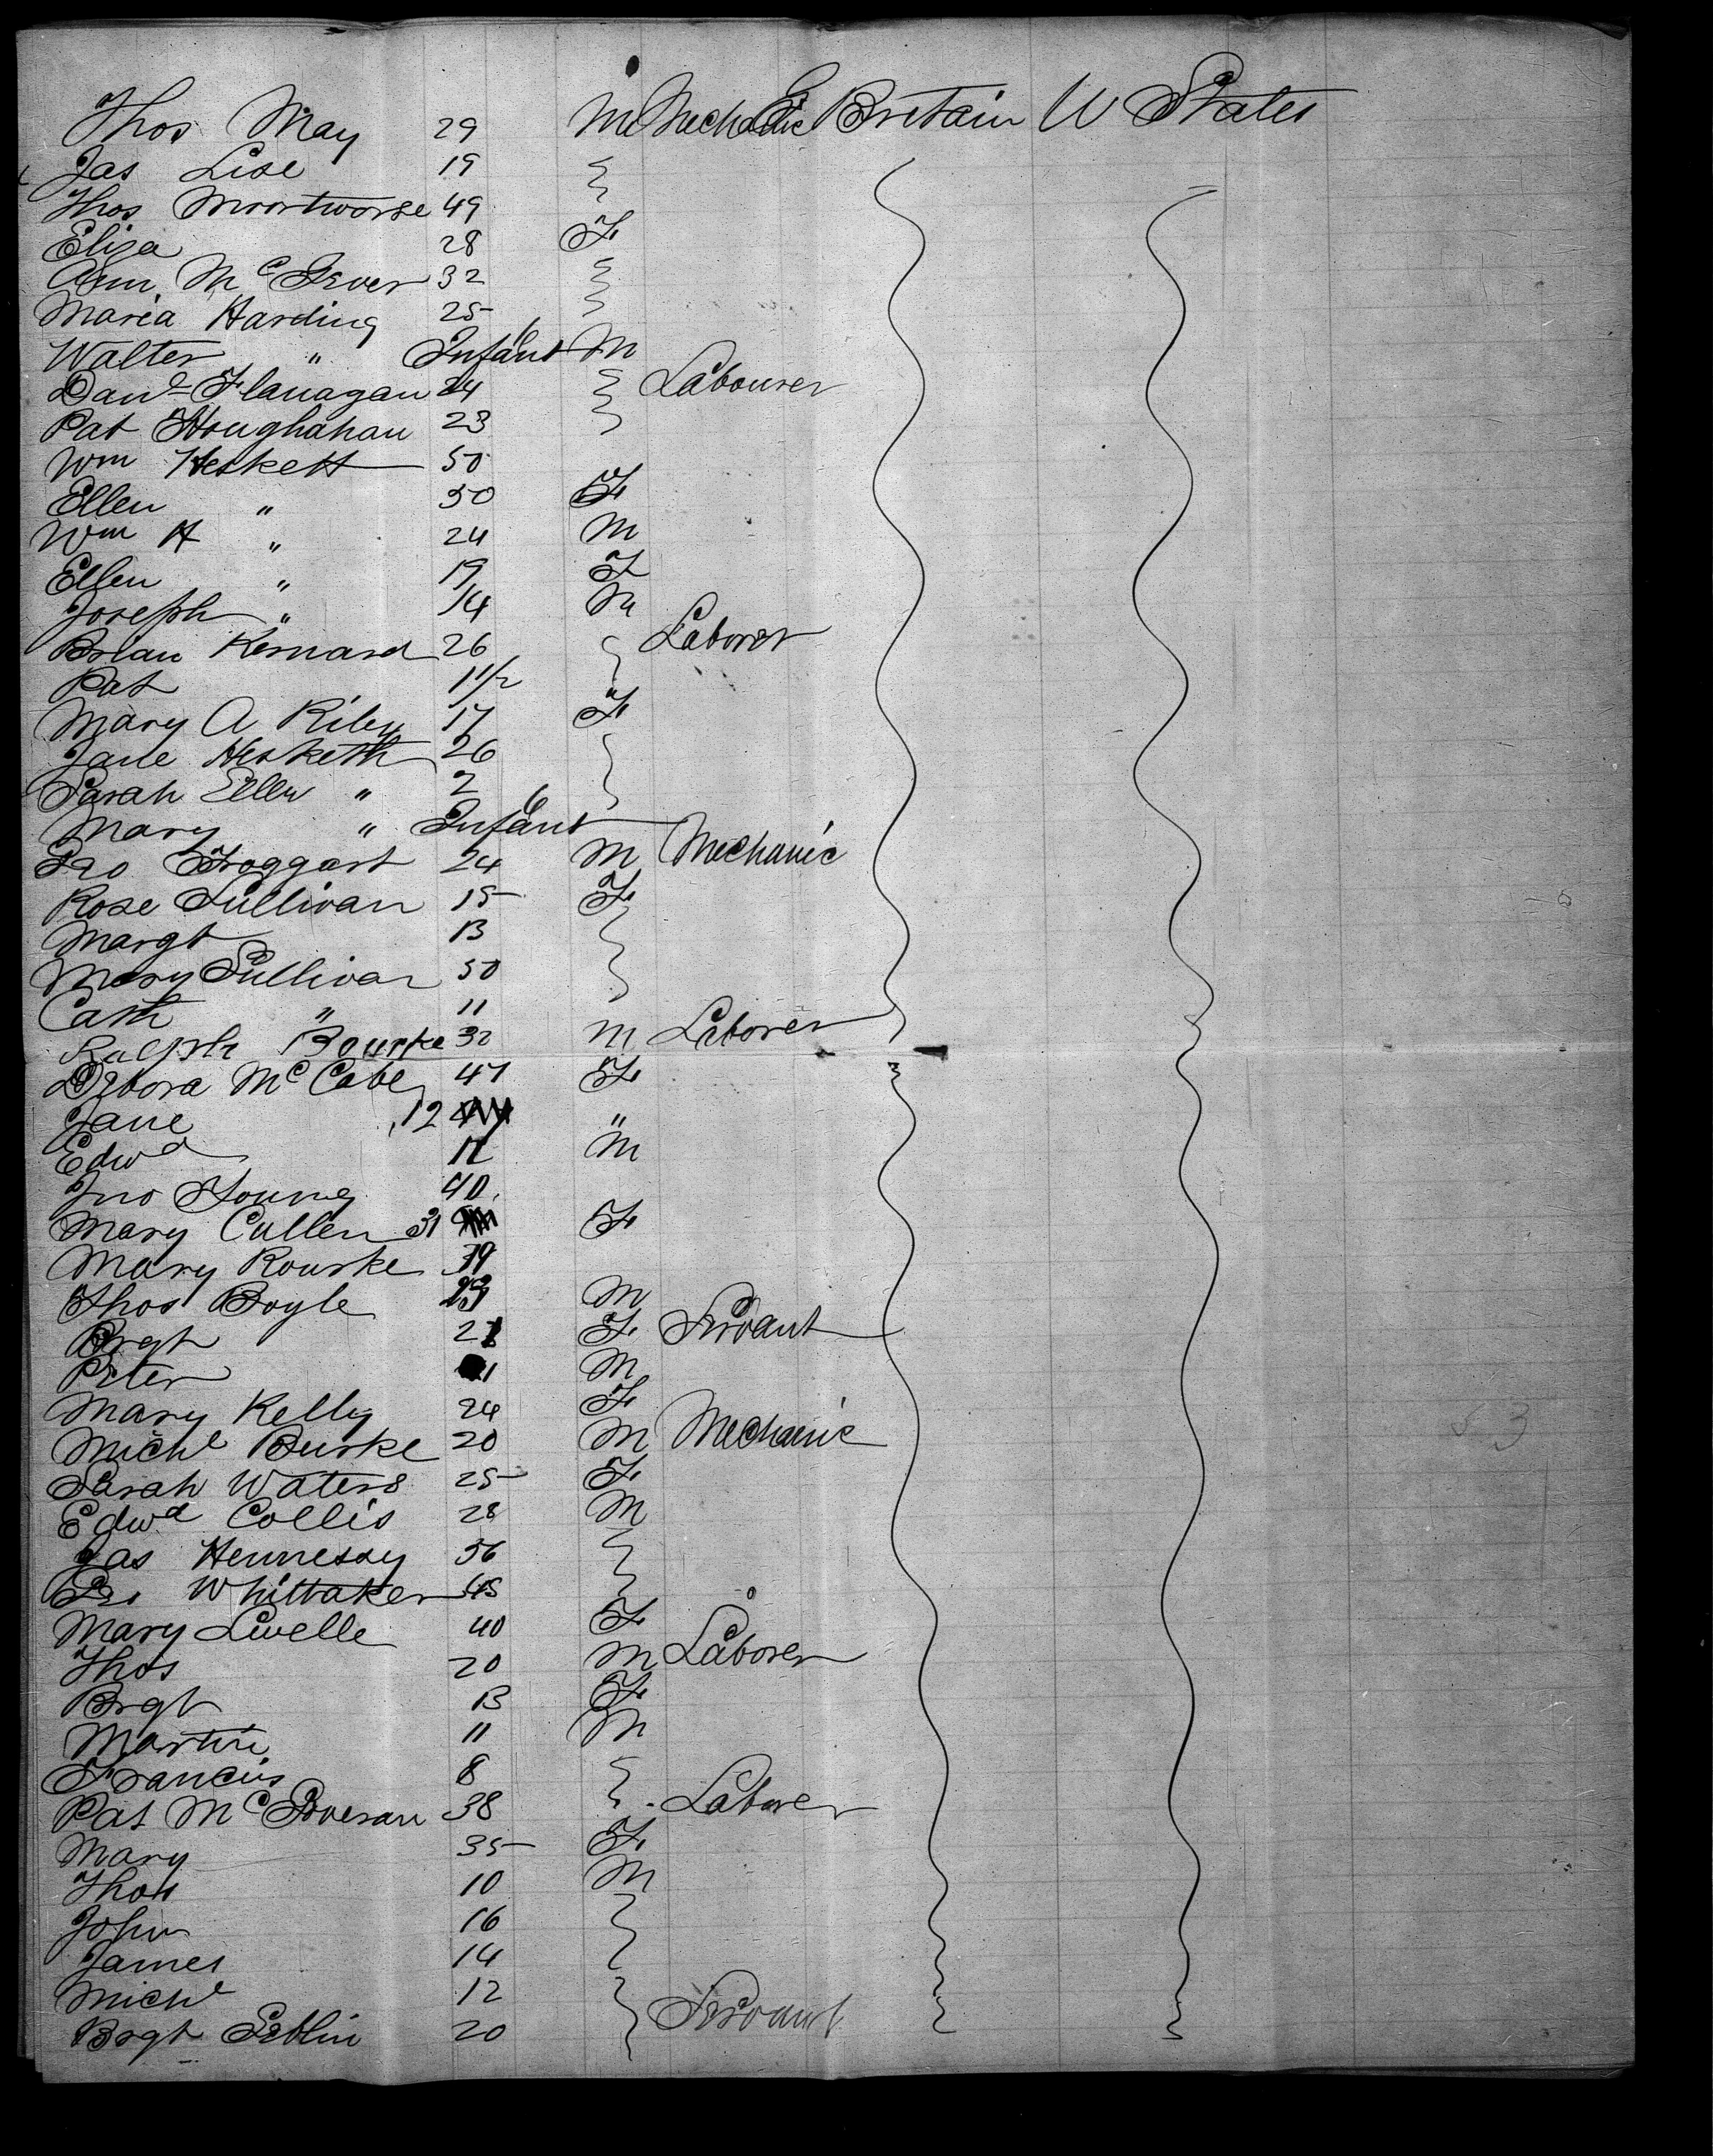 Thos May 29 M Mechanic Gt Britain U States
Jas Lise 19
Thos 49
Eliza 28 F
Ann McIver 32
Maria Harding 25
Walter " Infant M
Danl Flanagan 24 Labourer
Pat Houghahan 23
Wm Heskett 50
Ellen " 50 F
Wm H " 24 M
Ellen " 19 F
Joseph " 14 M
Brian Kernard 26 Laborer
Pat 11/2
Mary A Riley 17 F
Jane Hesketh 26
Sarah Ellen " 2
Mary " Infant
Geo Froggart 24 M Mechanic
Rose Sullivan 15 F
Margt 13
Mary Sullivan 50
Cath " 11
Ralph Bourke 32 M Laborer
Debora McCabe 47 F
Jane 12 "
Edwd 11 M
Jno Young 40
Mary Cullen 31 F
Mary Rourke 39
Thos Boyle M
Brgt F Servant
Peter 1 M
Mary Kelly 24 F
Michl Burke 20 M Mechanic
Sarah Waters 25 F
Edwd Collis 28 M
Jas Hennessy 56
Geo Whittaker 45
Mary Livelle 40 F
Thos 20 M Laborer
Brgt 13 F
Martin 11 M
Francis 8
Pat McGoveran 38 Laborer
Mary 35 F
Thos 10 M
John 16
James 14
Michl 12
Brgt 20 Servant